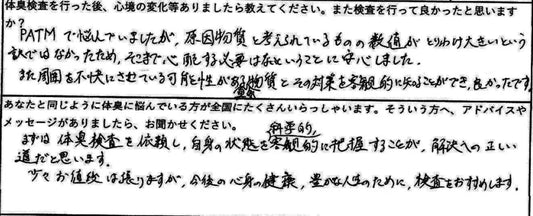 体臭検査を行った後、心境の変化等ありましたら教えてください。また検査を行って良かったと思いますか?
PATMで悩んでいましたが、原因物質と考えられているものの数値がとりわけ大きいという
訳ではなかったため、そこまで心配する必要はないということに安心しました。
また周囲を不快にさせている可能性がある物質とその対策を客観的に知ることができ、良かったです。
あなたと同じように体臭に悩んでいる方が全国にたくさんいらっしゃいます。そういう方へ、アドバイスや
メッセージがありましたら、お聞かせください。
まずは体臭検査を依頼し、自身の状態を科学的、客観的に把握することが、解決への正しい
道だと思います。
少々お値段は張りますが、今後の心身の健康、豊かな人生のために、検査をおすすめします。